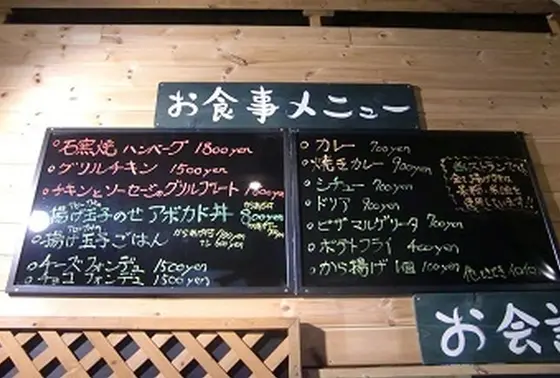 お食事メニュー
石窯焼 ハンバーグ 1800yen
グリルチキン 1500yen
チキンとソーセージのグリルプレート 1800yen
揚げ玉子のせ アボカド丼 800yen
揚げ玉子ごはん
チーズフォンデュ 1500yen
チョコフォンデュ 1500yen
カレー 700yen
焼きカレー 900yen
シチュー 700yen
ドリア 800yen
ピザ マルゲリータ 700yen
ポテトフライ 400yen
から揚げ 1個 100yen
お会